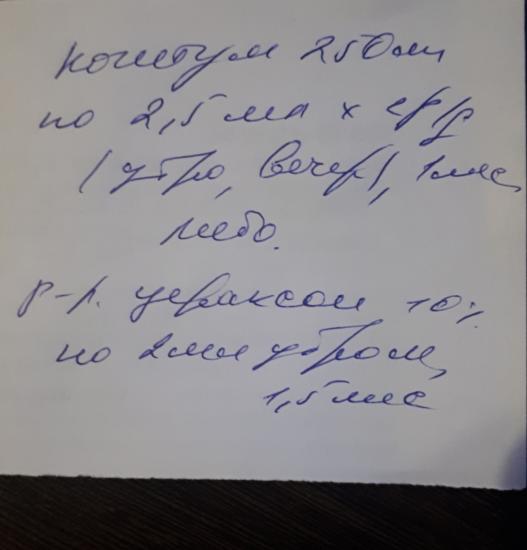 когитум 250мг
по 2,5 мл х 2р/д
(утро, вечер), 1мес
либо.
р-р. цераксон 10%
по 2мл утром,
1,5 мес